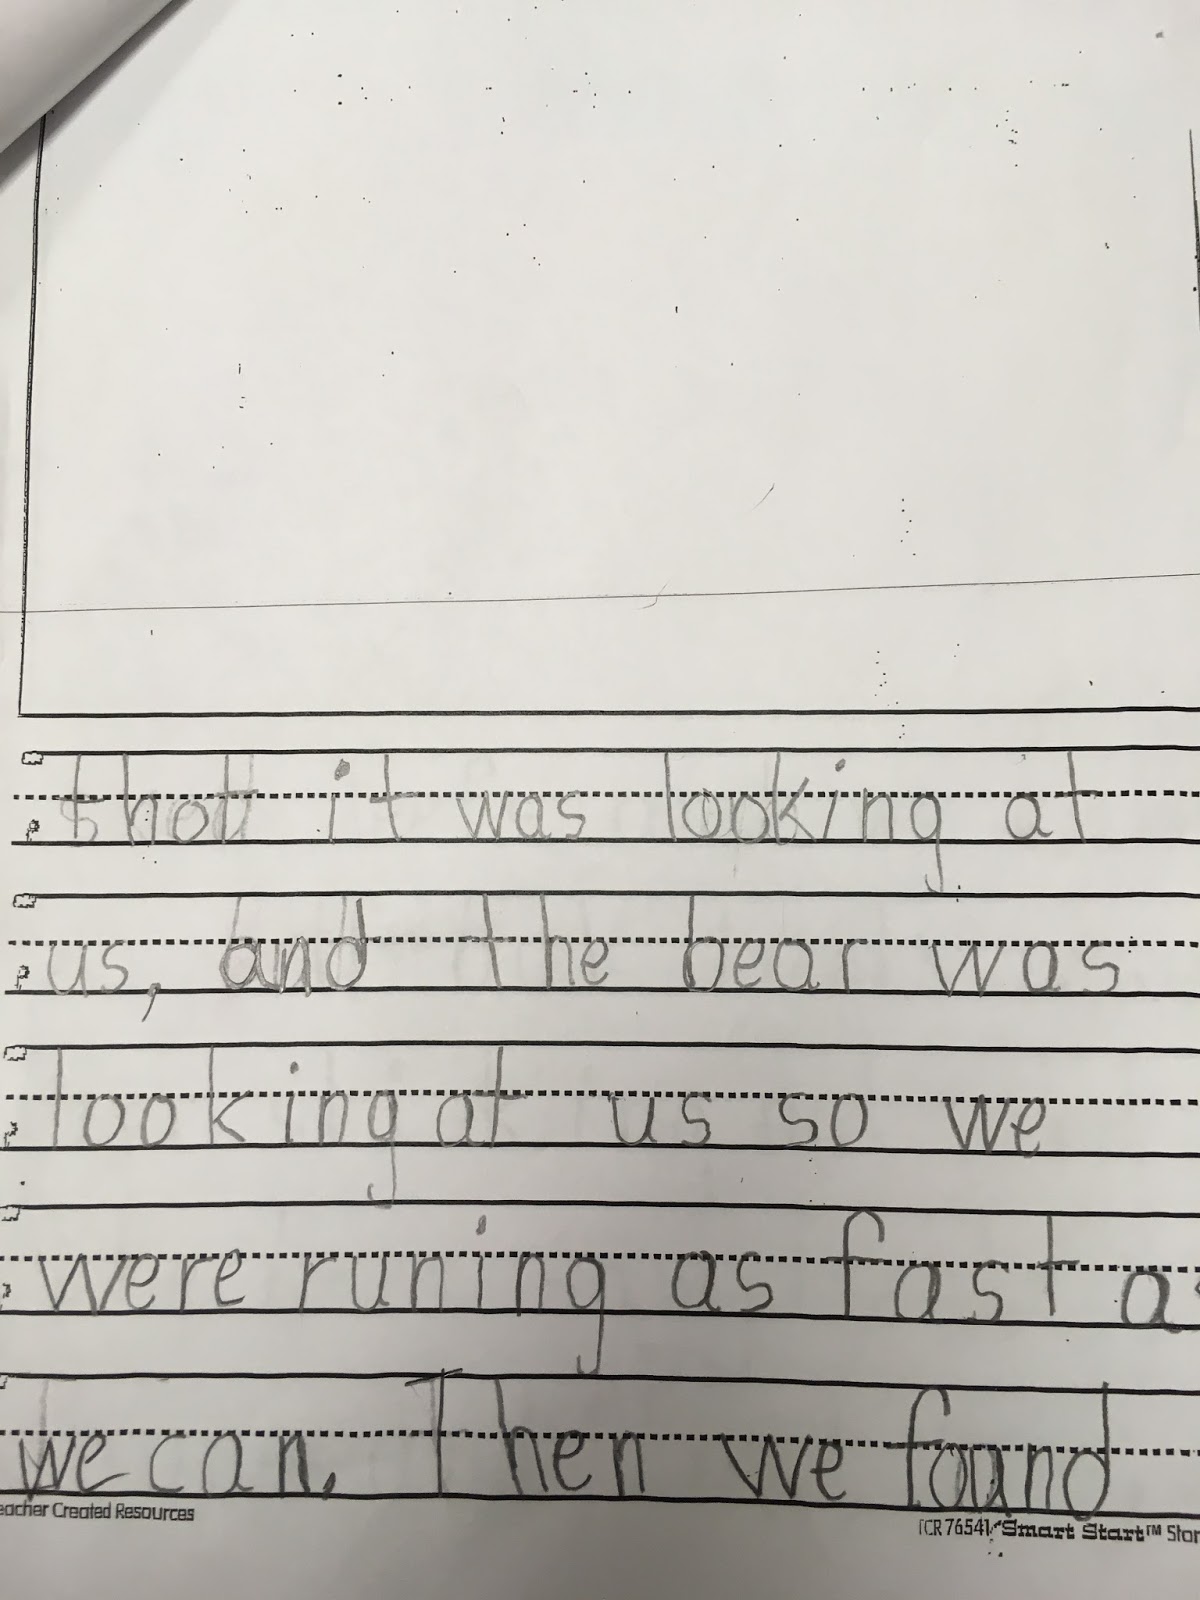 thot it was looking at
us, and the bear was
looking at us so we
were runing as fast a
we can. Then we found
eacher Created Resources
TCR 76541 Smart Start™ Stor